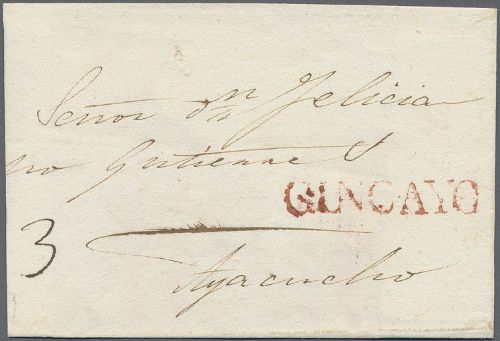 Señor dn Felicia
no Gutierrez
GUNCAYO
3
Ayacucho